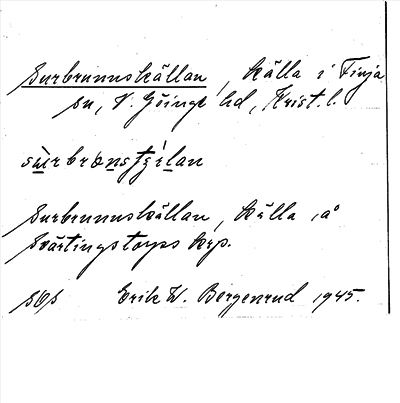 Surbrunnskällan, källa i Finja
sn, V. Göinge hd, Krist. l.
Surbrunnskällan, källa å
Skärtingstorps krp.
Erik W. Bergenrud 1945.